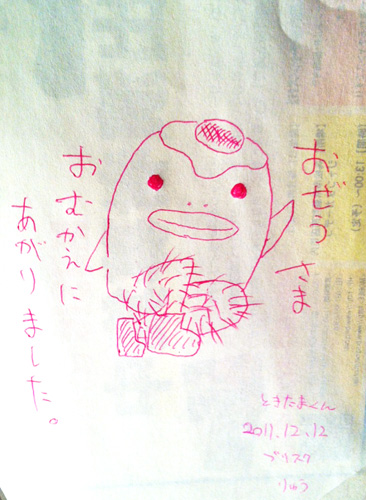 おぞうさま
おむかえに
あがりました。
ときたまくん
2011.12.12
ブリスク
りゅう